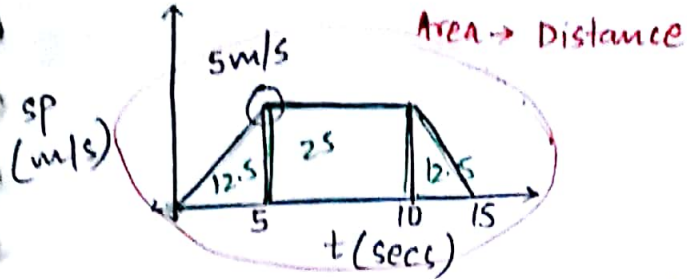 Area → Distance
5m/s
sp
(m/s)
12.5 25 12.5
5 10 15
t(secs)